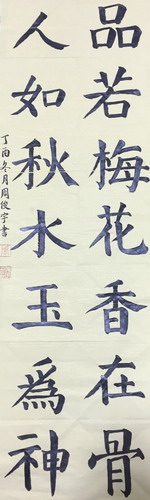 品若梅花香在骨
人如秋水玉為神
丁酉冬月周俊宇書